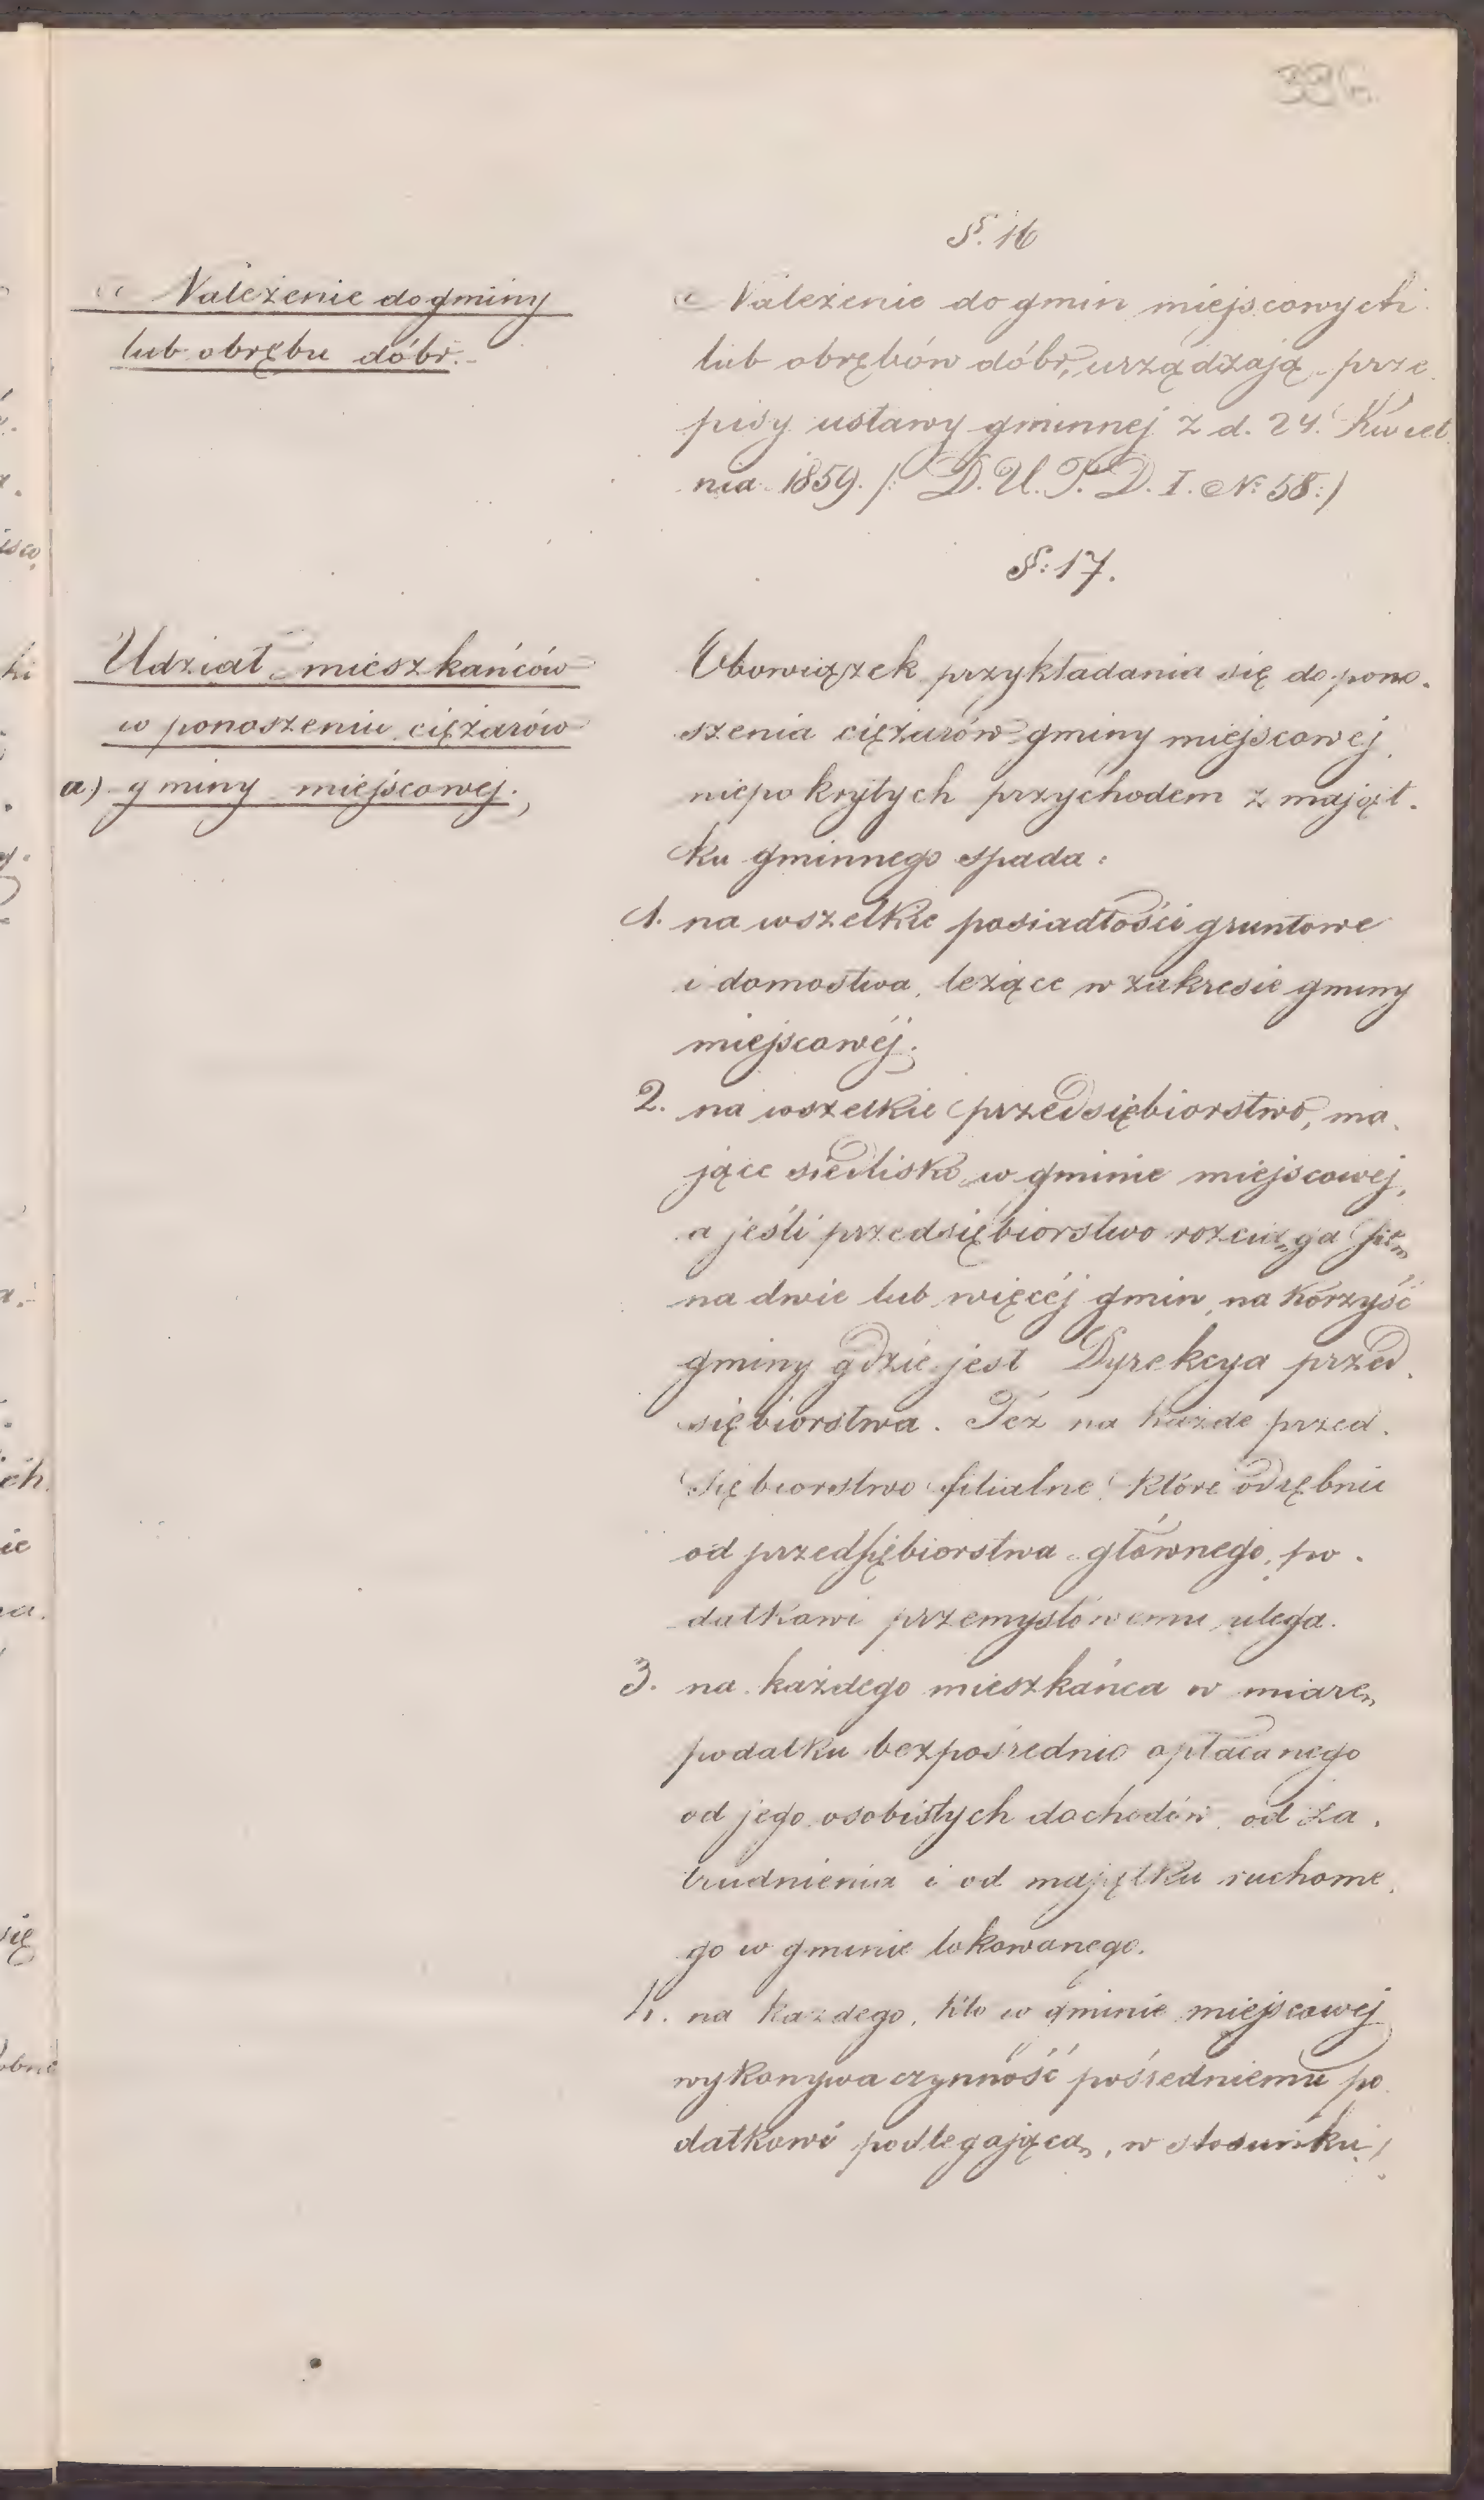 396.
§. 16
Należenie do gminy
lub obrębu dóbr.
Należenie do gmin miejscowych
lub obrębów dóbr, urządzają prze
pisy ustawy gminnej z d. 24. Kwiet
nia 1859. /: D. U. P. D. I. № 58:/
§: 17.
Udział mieszkańców
w ponoszeniu ciężarów
a) gminy miejscowej.
Obowiązek przykładania się do pono-
szenia ciężarów gminy miejscowej
niepokrytych przychodem z mająt-
ku gminnego spada:
1. na wszelkie posiadłości gruntowe
i domostwa, leżące w zakresie gminy
miejscowéj.
2. na wszelkie przedsiębiorstwo, ma-
jące siedlisko w gminie miejscowej,
a jeśli przedsiębiorstwo rozciąga się
na dwie lub więcéj gmin, na korzyść
gminy gdzie jest Dyrekcya przed-
siębiorstwa. Też na każde przed-
siębiorstwo filialne, które odrębnie
od przedsiębiorstwa głównego, po-
datkowi przemysłowemu ulega.
3. na każdego mieszkańca w miarę
podatku bezpośrednio opłacanego
od jego osobistych dochodów, od za-
trudnienia i od majątku ruchome-
go w gminie lokowanego.
4. na każdego, kto w gminie miejscowej
wykonywa czynność pośredniemu po
datkowi podlegającą, w stosunku